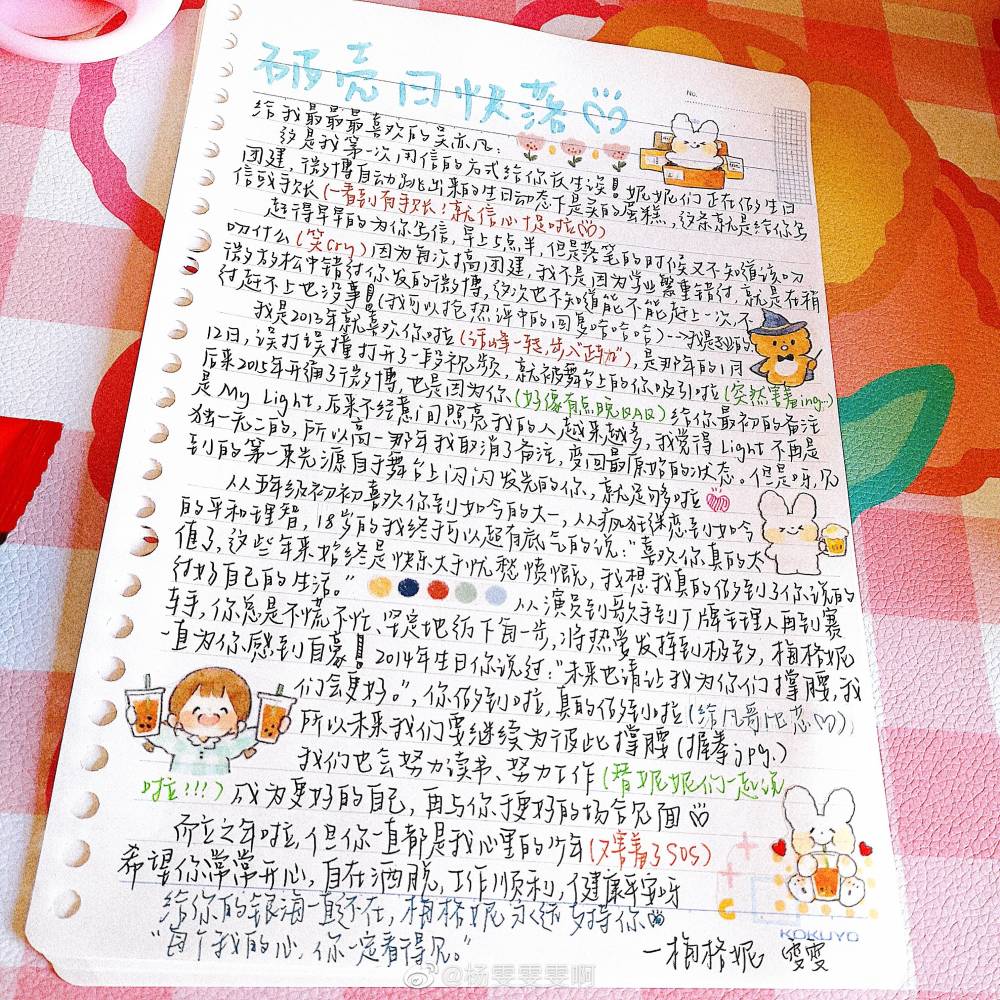 破壳日快落
No.
给我最最最喜欢的吴亦凡：
这是我第一次用信的方式给你庆生诶！妮妮们正在做生日
团建，微博自动跳出来的生日动态下是买的蛋糕，这条就是给你写
信或手账（一看到有手账！就信心十足啦）
赶得早早的为你写信，早上5点半，但是落笔的时候又不知道该叨
叨什么（笑cry）因为每次搞团建，我不是因为学业繁重错付，就是在稍
微放松中错过你发的微博，这次也不知道能不能赶上一次，不
过赶不上也没事！（我可以抢热评中的回复哈哈哈哈）
我是2013年就喜欢你啦（话峰一转，步入正方），是那年的1月
12日，误打误撞打开了一段视频，就被舞台上的你吸引啦（突然害羞ing...）
后来2015年开通了微博，也是因为你（好像有点晚QAQ）给你最初的备注
是My Light，后来不经意间照亮我的人越来越多，我觉得Light不再是
独一无二的，所以高一那年我取消了备注，变回最原始的状态。但是呀，见
到的第一束光源自于舞台上闪闪发光的你，就足够啦
从五年级初初喜欢你到如今的大一，从疯狂迷恋到如今
的平和理智，18岁的我终于可以超有底气的说：“喜欢你真的太
值了，这些年来始终是快乐大于忧愁愤慨，我想我真的做到了你说的
过好自己的生活。”
从演员到歌手到厂牌主理人再到赛
车手，你总是不慌不忙、坚定地迈下每一步，将热爱发挥到极致，梅格妮
一直为你感到自豪！2014年生日你说过：“未来也请让我为你们撑腰，我
们会更好。”，你做到啦，真的做到啦（给凡哥比芯）
所以未来我们要继续为彼此撑腰（握拳jpg.）
我们也会努力读书、努力工作（替妮妮们一起说
啦！！！）成为更好的自己，再与你于更好的场合见面
而立之年啦，但你一直都是我心里的少年（又害羞了SOS）
希望你常常开心，自在洒脱，工作顺利，健康平安呀
给你的银海一直还在，梅格妮永远支持你
“每个我的心，你一定看得见。”
一梅格妮 雯雯
KOKUYO
@杨雯雯雯啊